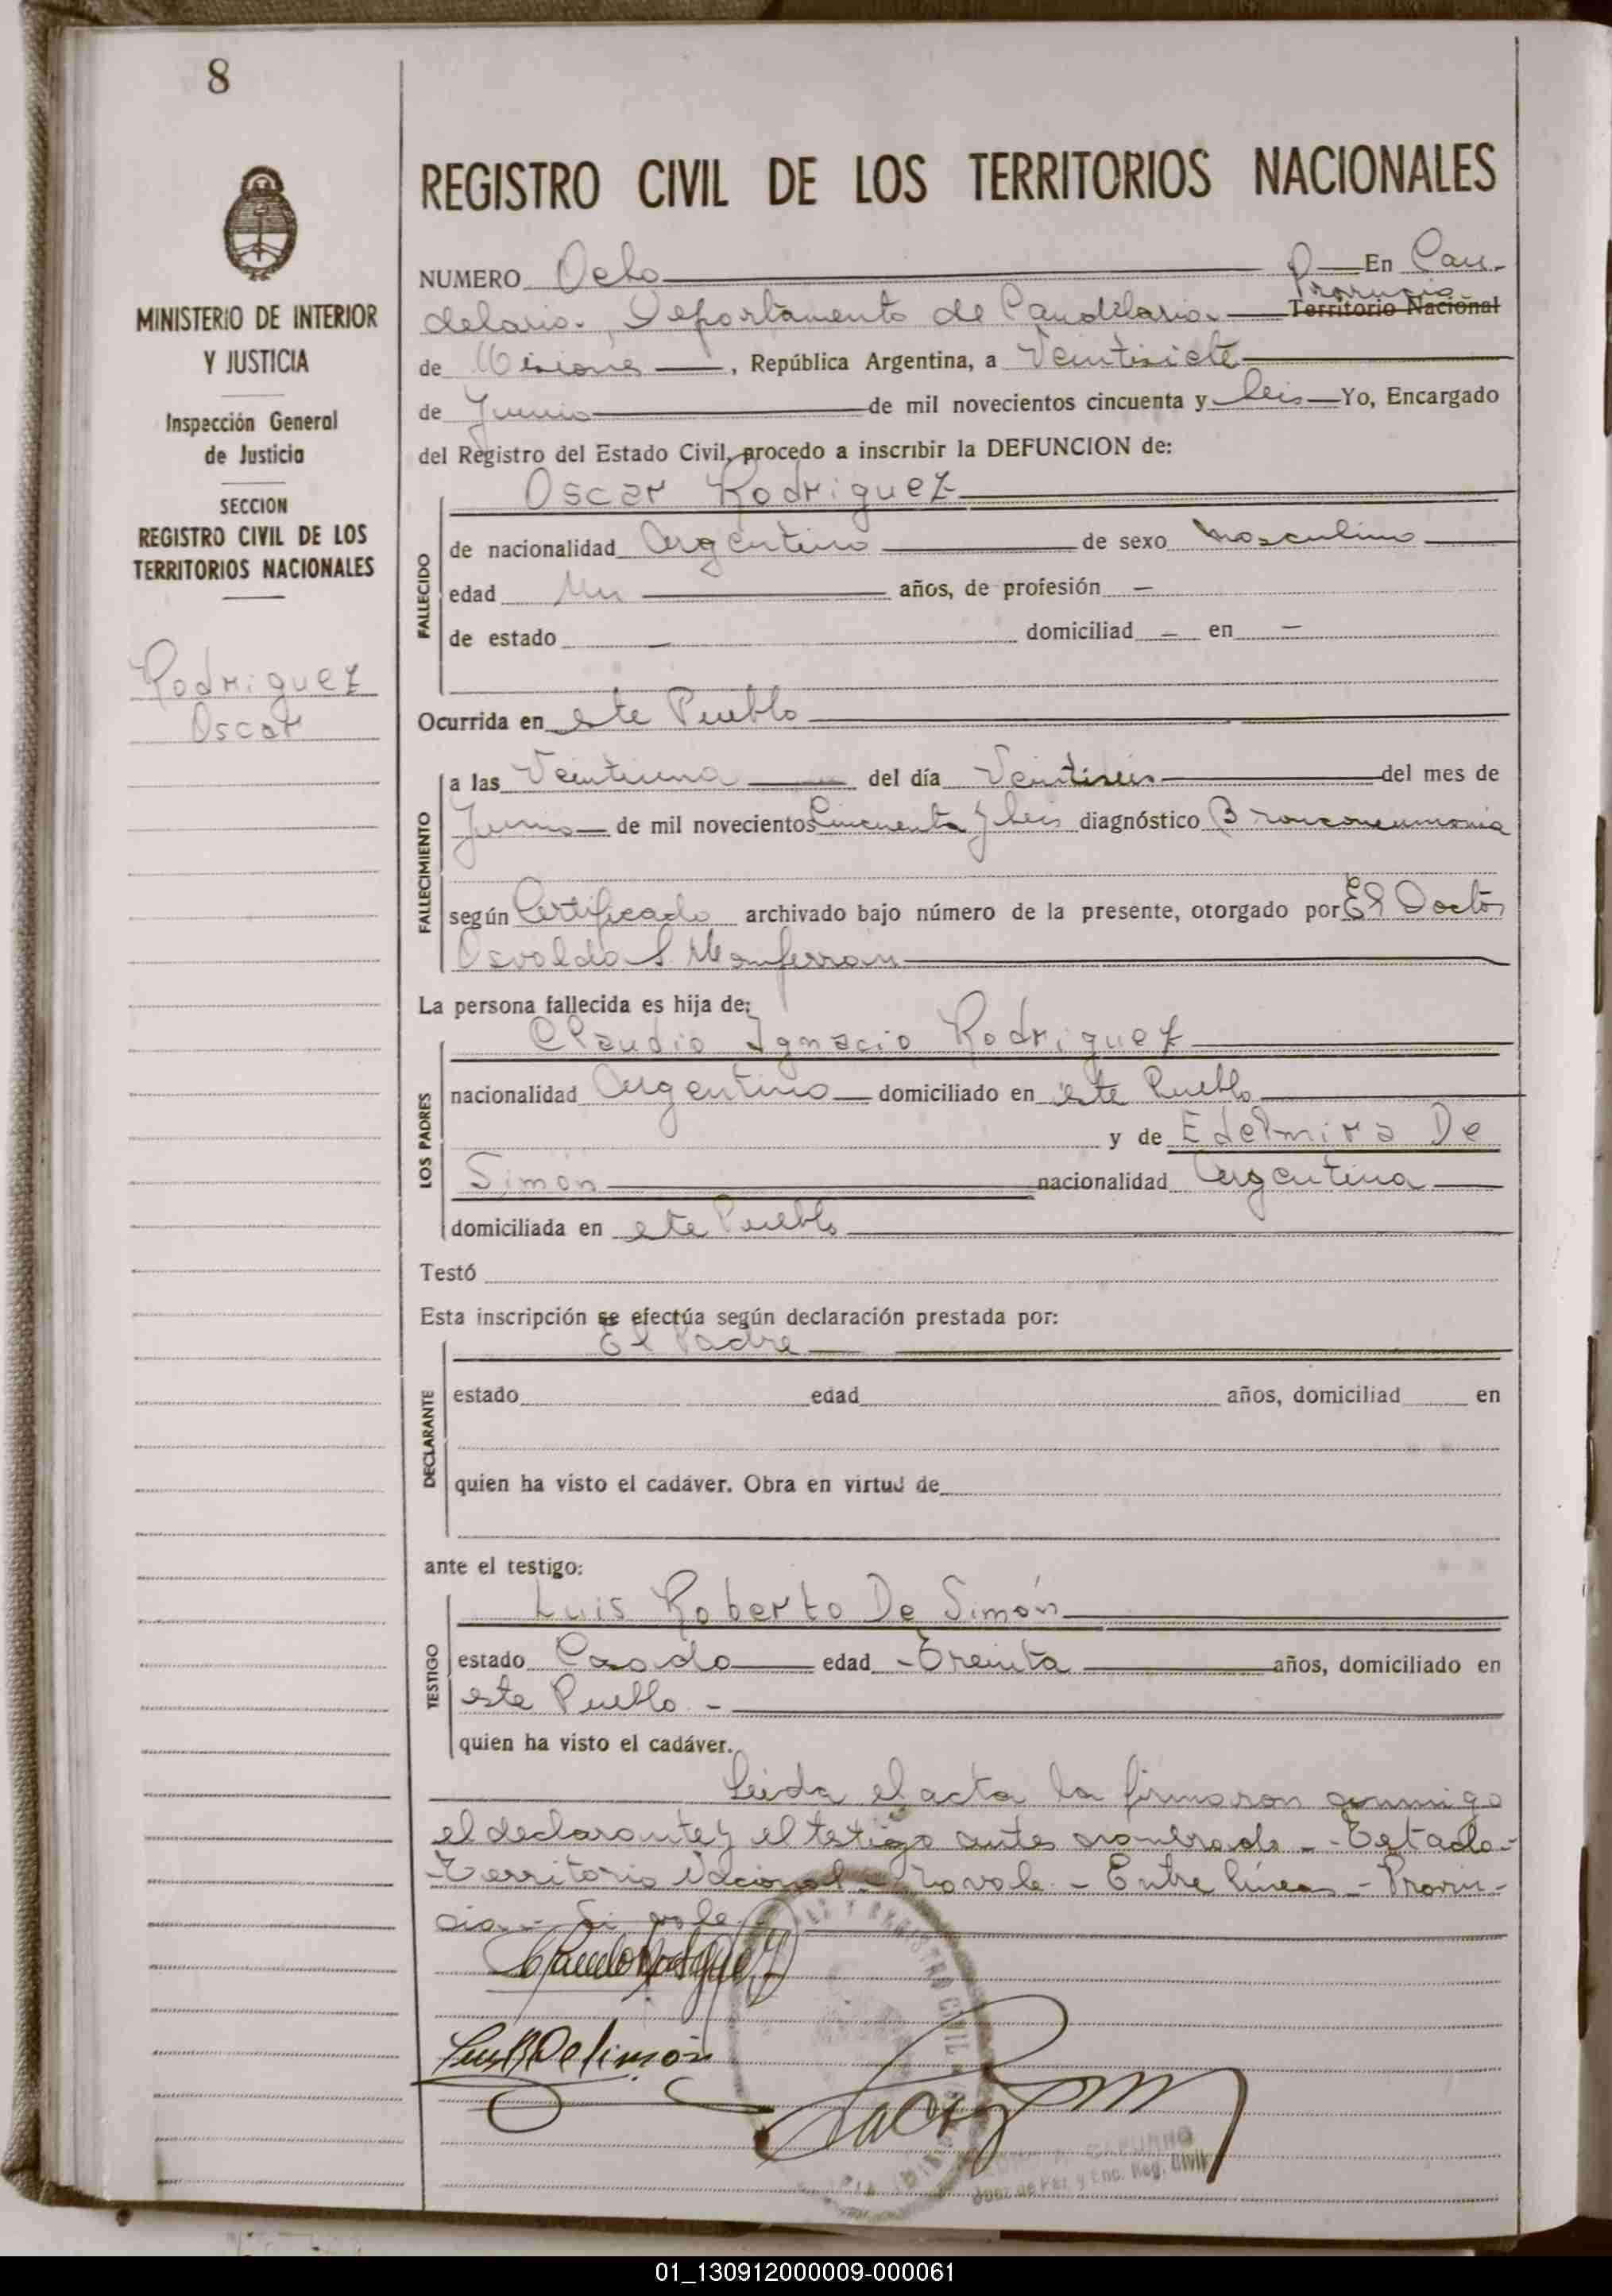 8
MINISTERIO DE INTERIOR
Y JUSTICIA
Inspección General
de Justicia
SECCION
REGISTRO CIVIL DE LOS
TERRITORIOS NACIONALES
Rodriguez
Oscar
REGISTRO CIVIL DE LOS TERRITORIOS NACIONALES
NUMERO Ocho En Can-
Provincia
delaria. Departamento de Candelaria. Territorio Nacional
de Misiones, República Argentina, a Veintisiete
de Junio de mil novecientos cincuenta y seis Yo, Encargado
del Registro del Estado Civil, procedo a inscribir la DEFUNCION de:
Oscar Rodriguez
FALLECIDO
de nacionalidad Argentino de sexo masculino
edad Un años, de profesión —
de estado — domiciliad — en —
Ocurrida en este Pueblo
FALLECIMIENTO
a las Veintiuna del día Veintiseis del mes de
Junio de mil novecientos Cincuenta y seis diagnóstico Bronconeumonia
según Certificado archivado bajo número de la presente, otorgado por El Doctor
Osvaldo S. Monferran
La persona fallecida es hija de:
Claudio Ignacio Rodriguez
LOS PADRES
nacionalidad Argentino domiciliado en este Pueblo
y de Edelmira De
Simón nacionalidad Argentina
domiciliada en este Pueblo
Testó
Esta inscripción se efectúa según declaración prestada por:
El Padre
DECLARANTE
estado edad años, domiciliad en
quien ha visto el cadáver. Obra en virtud de
ante el testigo:
Luis Roberto De Simón
TESTIGO
estado Casado edad Treinta años, domiciliado en
este Pueblo. -
quien ha visto el cadáver.
Leida el acta la firmaron conmigo
el declarante y el testigo antes nombrado - Testado-
Territorio Nacional - No vale. - Entre lineas - Provin-
cia - Si vale
Luis R De Simón
Juez de Paz y Enc. Reg. Civil
01_130912000009-000061